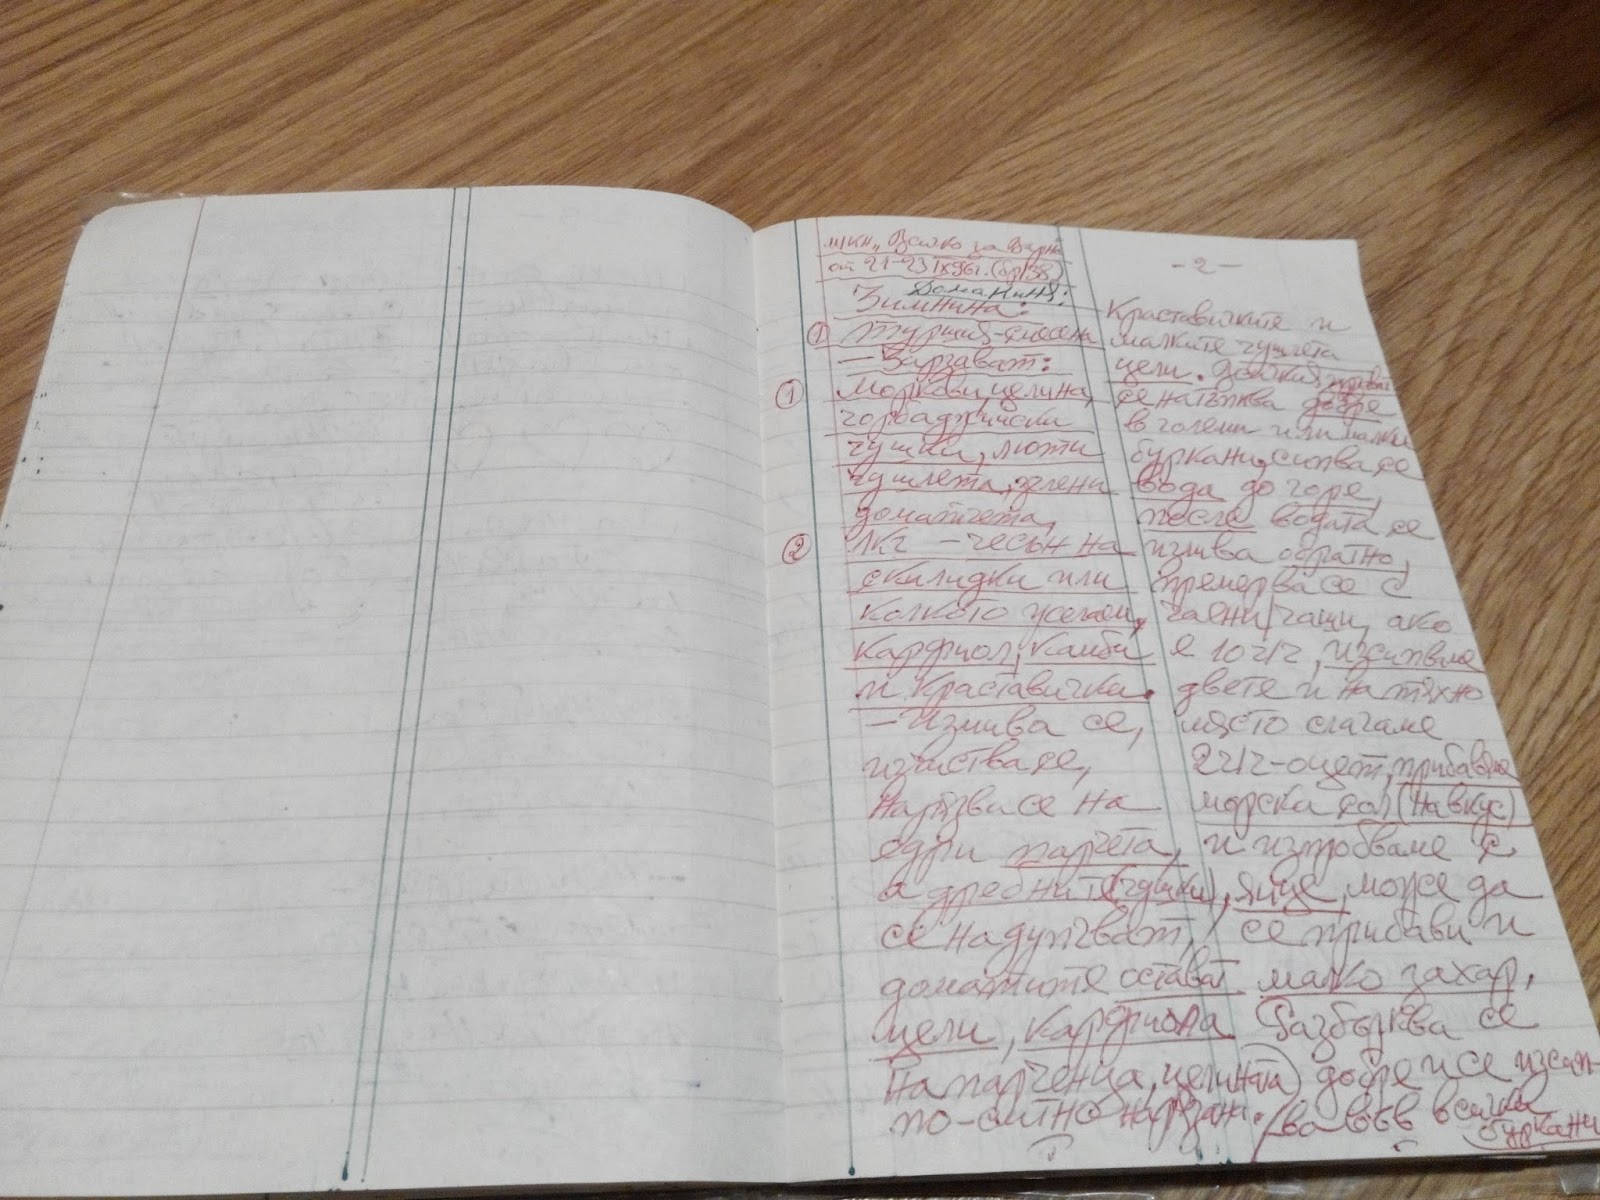 м/кн „Всичко за Варна
от 21-23 IX 96г. (бр/38)
Домакиня:
Зимнина:
① Туршия-смесена
— Зарзават:
① Моркови, целина,
чорбаджийски
чушки, люти
чушлета, зелени
доматчета,
② 1кг – чесън на
скилидки или
колкото желаем,
карфиол, камби
и краставички.
– Измива се,
изчиства се,
нарязва се на
едри парчета,
а дребните (чушки),
се надупчват,
доматите остават
цели, карфиола
на парченца, целината
по-ситно нарязани.
- 2 -
Краставичките и
малките чушлета
цели. Всичко
се натъпква добре
в големи или малки
буркани, сипва се
вода до горе,
после водата се
излива обратно,
премерва се с
чаени чаши, ако
е 10 ч/ч, изсипваме
двете и на тяхно
място слагаме
2ч/ч-оцет, прибавяме
морска сол (на вкус)
и изпробваме с
яйце, може да
се прибави и
малко захар,
Разбърква се
добре и се изсип-
ва във всички
буркани